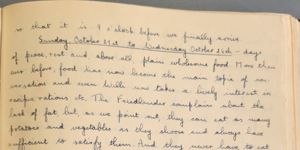 so that it is 9 o'clock before we finally arrive.
Sunday October 21st to Wednesday October 24th - days
of peace, rest and above all, plain wholesome food. More than
ever before, food has now become the main topic of con-
versation and even Willi now takes a lively interest in
recipes, rations etc. The Friedlanders complain about the
lack of fat but, as we point out, they can eat as many
potatoes and vegetables as they choose and always have
sufficient to satisfy them. And they never have to eat